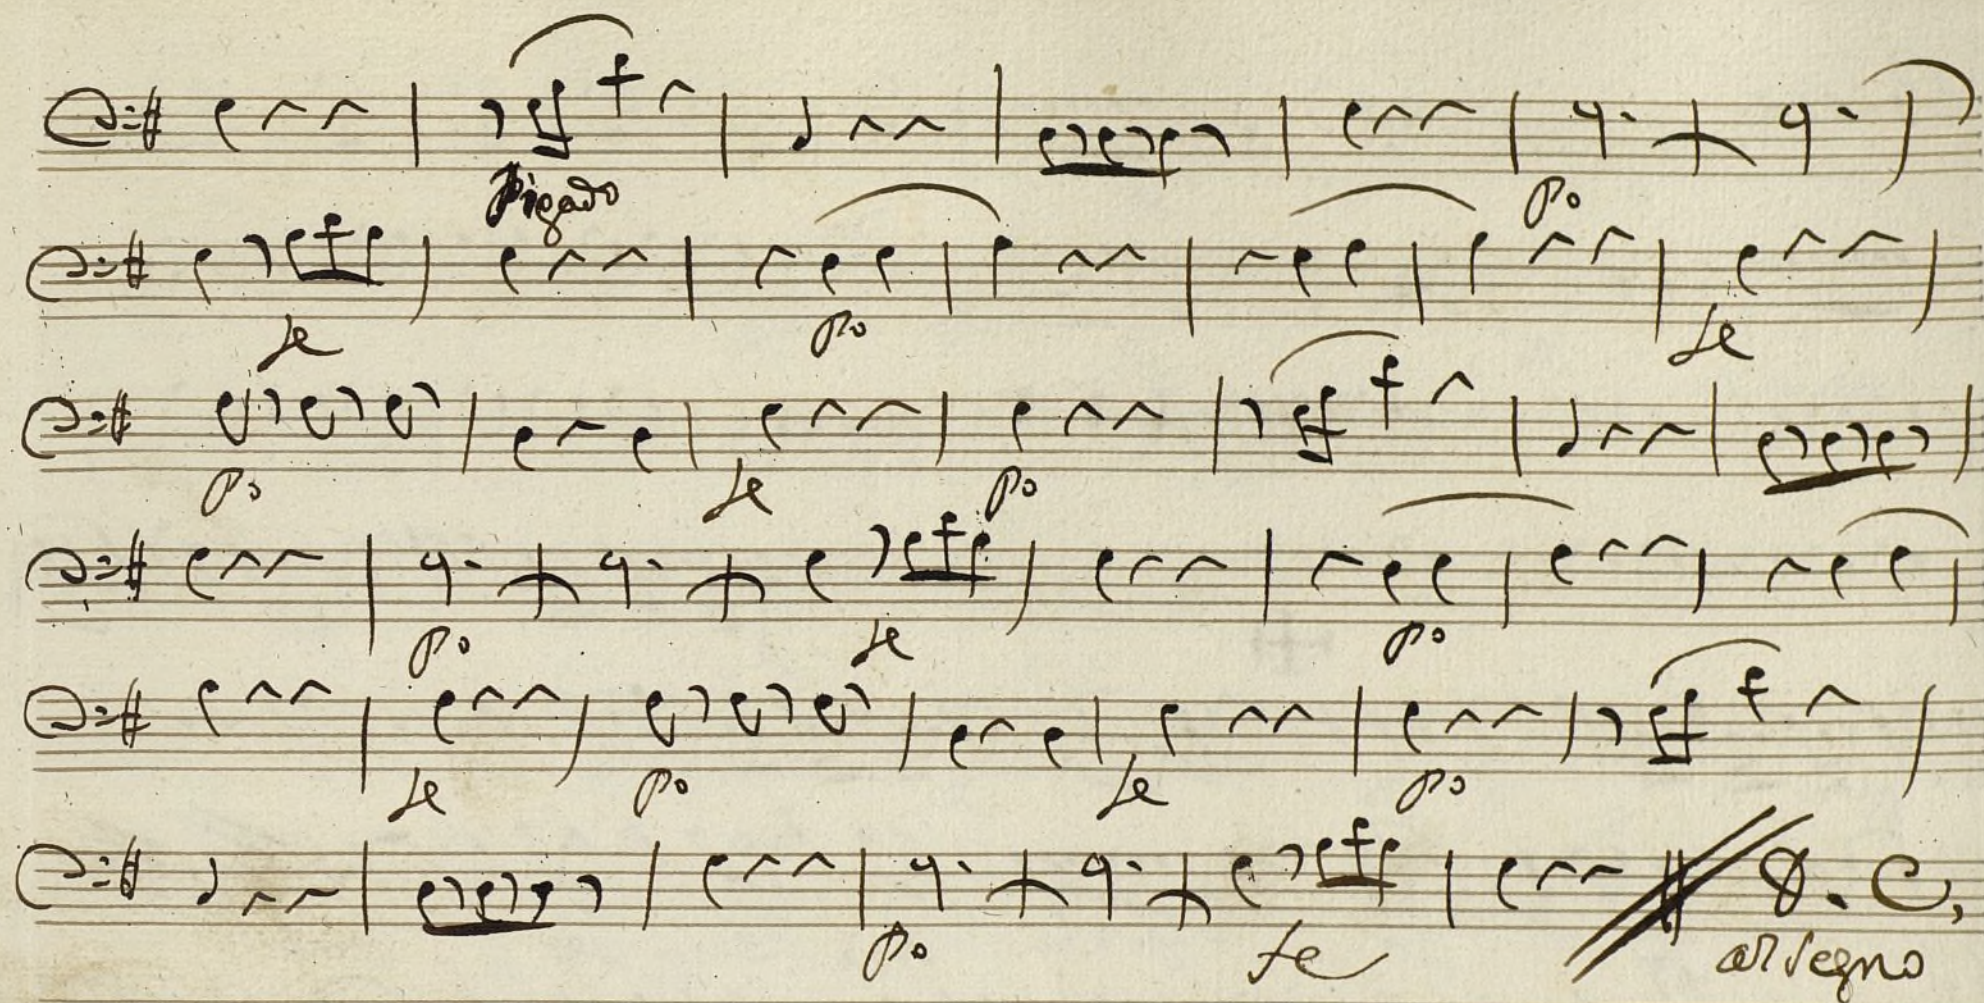 Pigado Po
fe Po fe
Po fe Po
Po fe Po
fe Po fe Po
D. C,
Po fe al segno